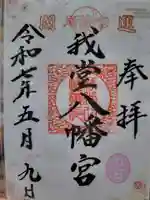 奉拝
我堂八幡宮
令和七年五月九日